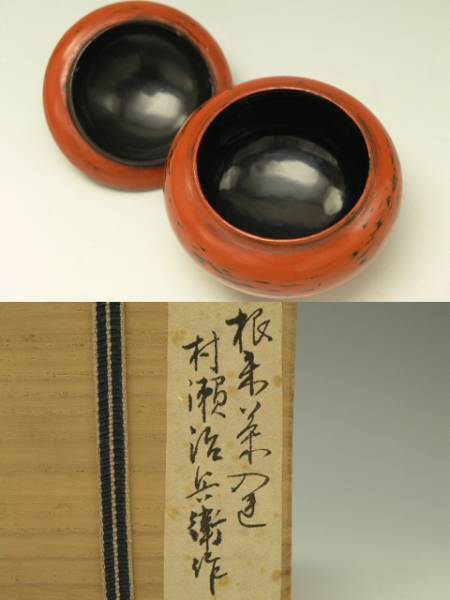 根来茶入
村瀬治兵衛作